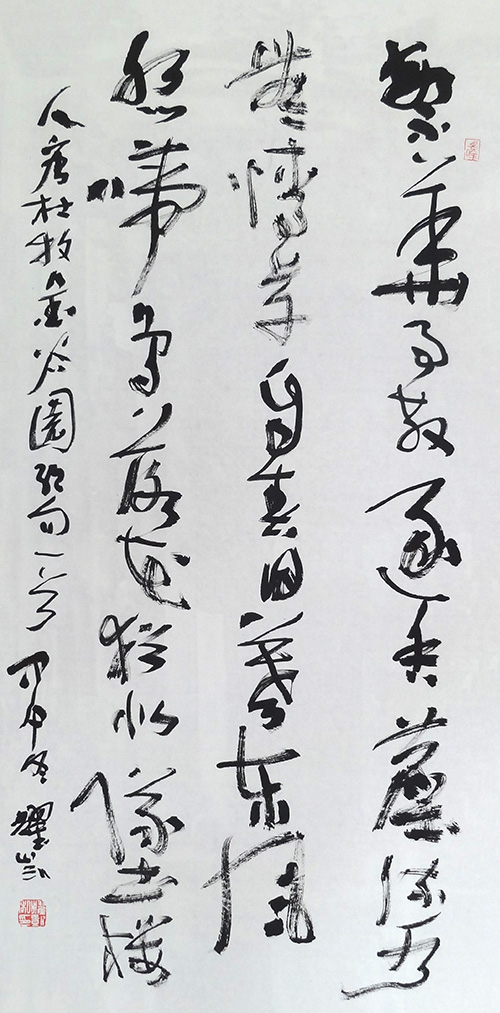 繁華事散逐香塵流水
無情草自春日暮東風
怨啼鳥落花猶似墜樓
人 唐杜牧金谷園絕句一首 丙申冬 耀